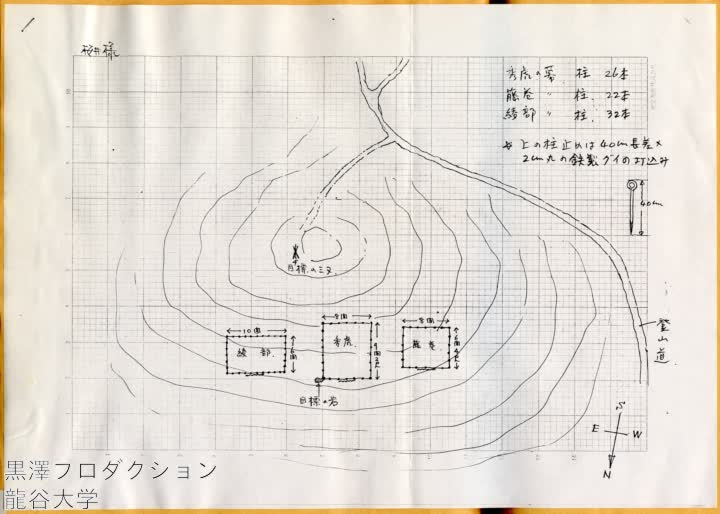 桜井様
秀虎の幕 柱 26本
藤巻 〃 柱 22本
綾部 〃 柱 32本
☆ 上の柱止めは40cm長差×
2cm丸の鉄製グイの打込み
40cm
目標のミヌ
10間
綾部
6間
8間
秀虎
9間3尺
8間
藤巻
6間4尺
目標の岩
登山道
S
E W
N
黒澤プロダクション
龍谷大学